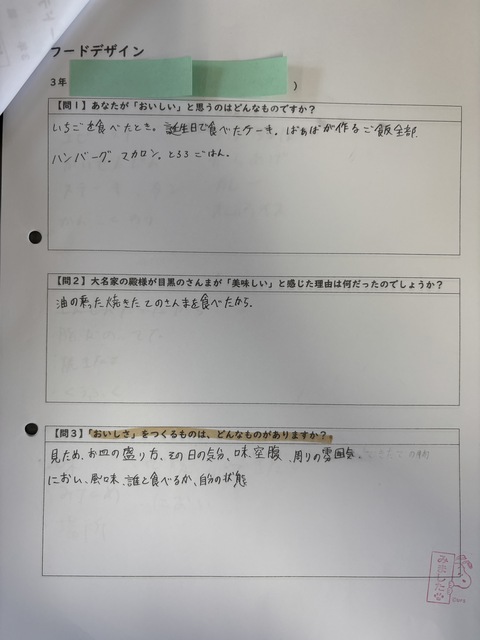 フードデザイン
3年
)
【問1】あなたが「おいしい」と思うのはどんなものですか?
いちごを食べたとき。誕生日で食べたケーキ。ばぁばが作るご飯全部。
ハンバーグ。マカロン。とろろごはん。
【問2】大名家の殿様が目黒のさんまが「美味しい」と感じた理由は何だったのでしょうか?
油の乗った焼きたてのさんまを食べたから。
【問3】「おいしさ」をつくるものは、どんなものがありますか?
見ため、お皿の盛り方、その日の気分、味、空腹、周りの雰囲気、
におい、風味、誰と食べるか、自分の状態
みました